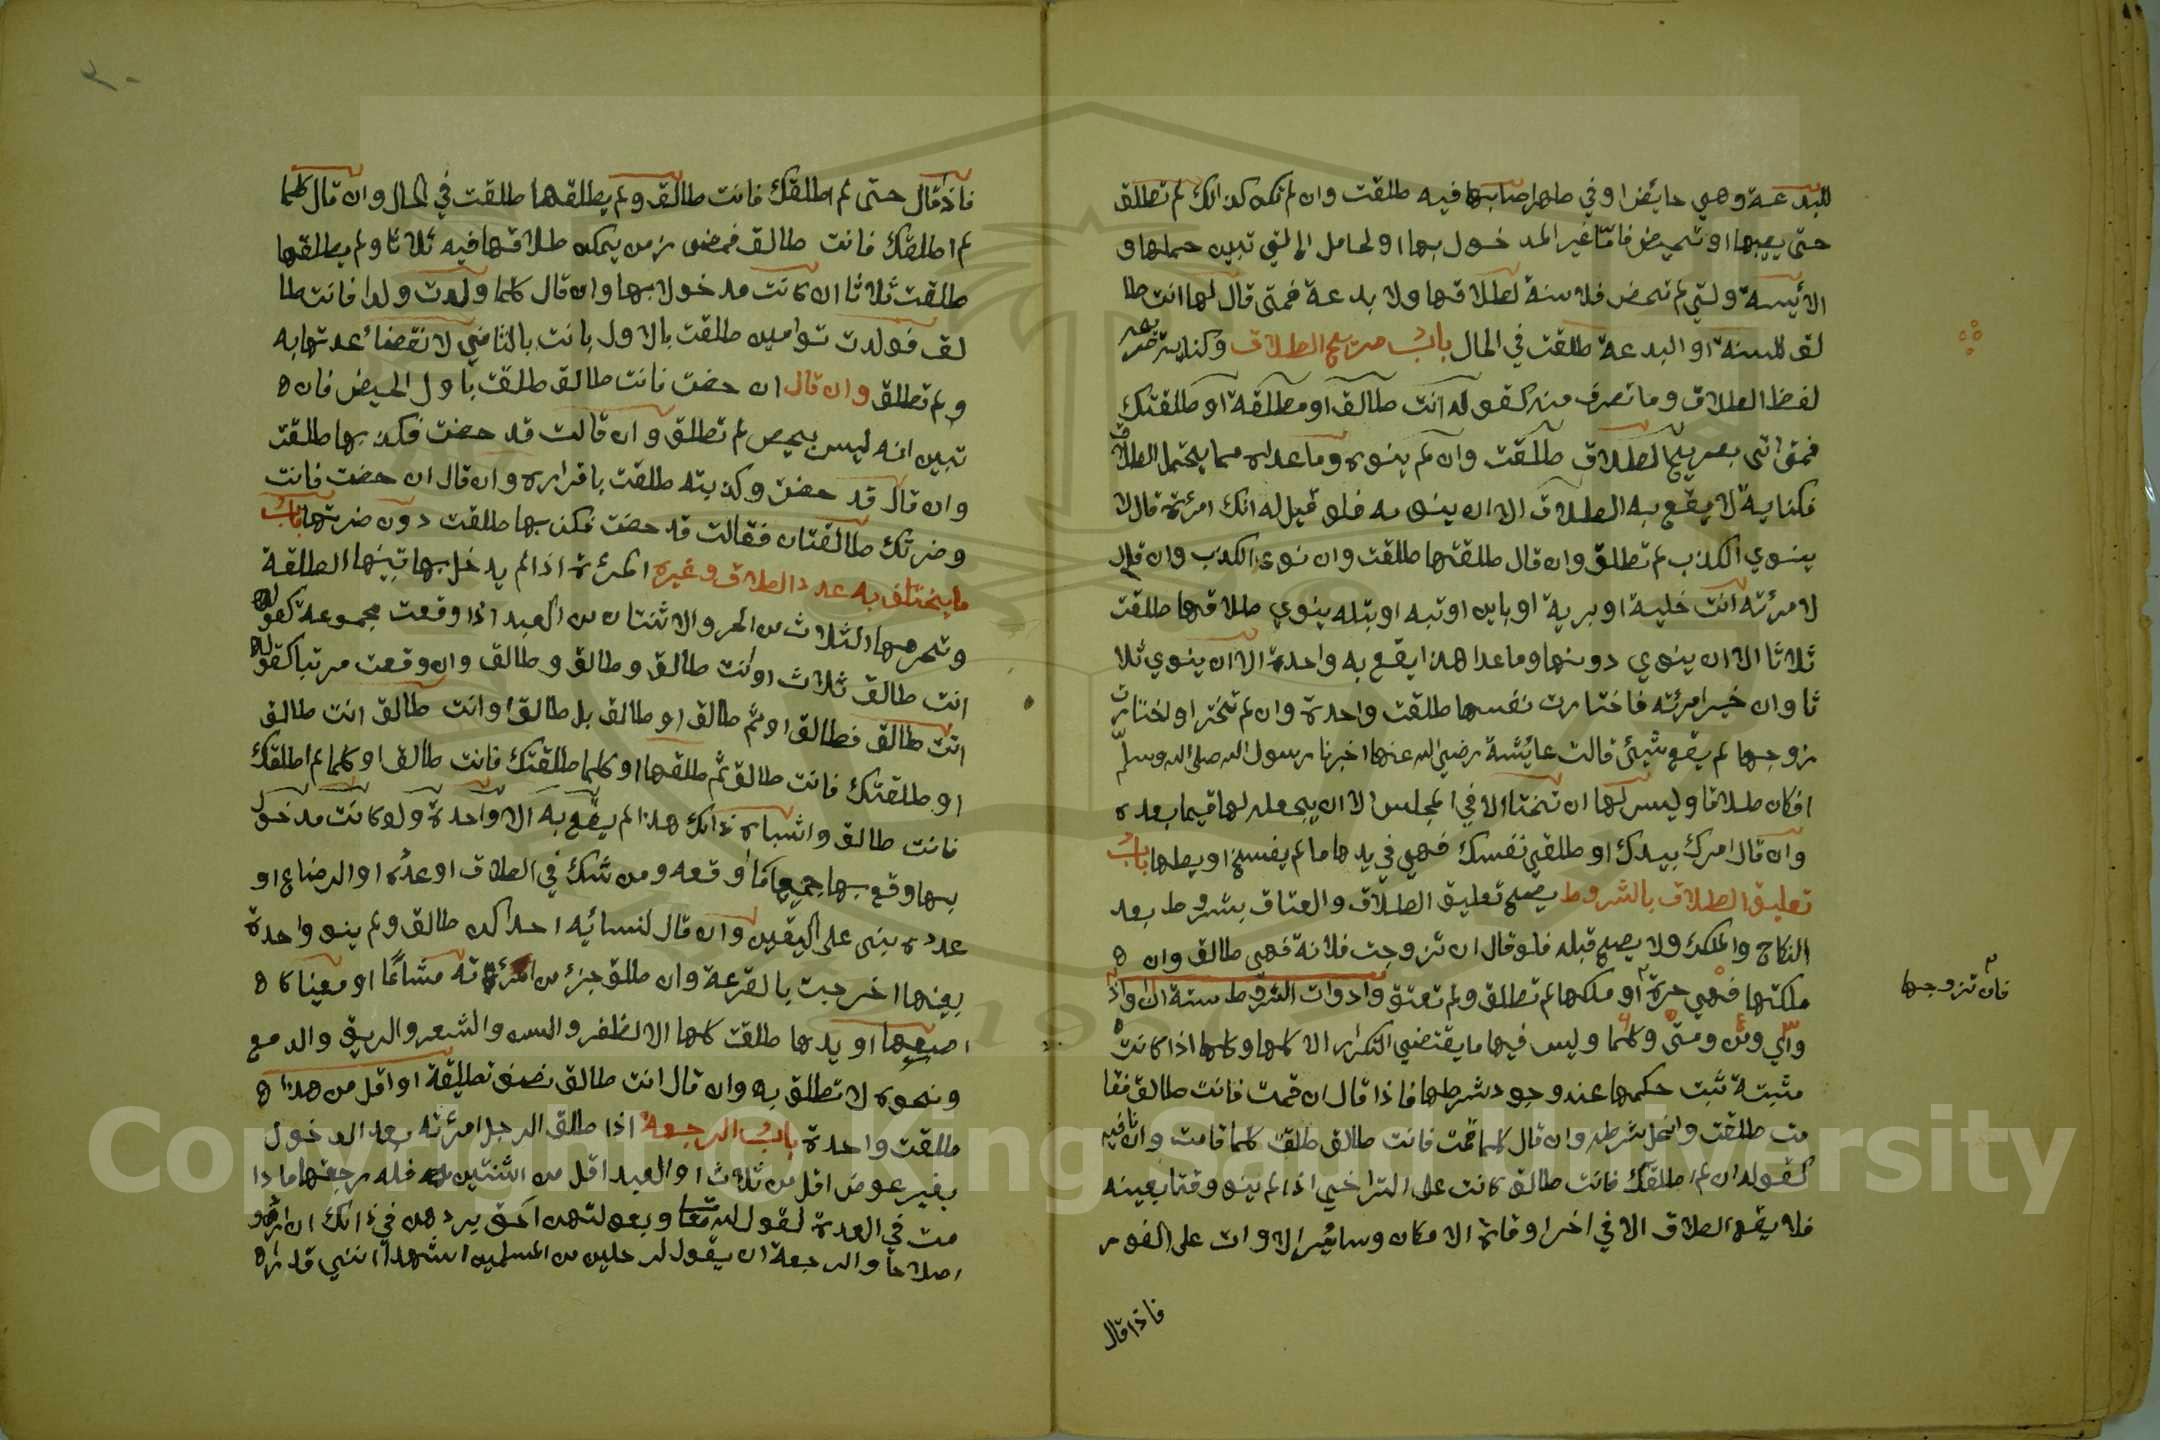 للبدعة وهي حايض او في طهر اصابها فيه طلقت وان لم تكن كذالك لم تطلق
حتى يصيبها او تحيض فامّا غير المدخول بها او لحامل التي تبين حملها و
الأيسة ولتي لم تحض فلا سنة لطلاقها ولا بدعة فمتى قال لها انت طا
لق للسنة او البدعة طلقت في الحال باب صريح الطلاق وكنايته صريحه
لفظ الطلاق وما تصرف منه كقوله انت طالق او مطلقة او طلقتك
فمتى اتى بصريح الطلاق طلقت وان لم ينوه وما عداه مما يحتمل الطلاق
فكناية لا يقع به الطلاق الا ان ينويه فلو قيل له الك امرئة قال لا
ينوي الكذب لم تطلق وان قال طلقتها طلقت وان نوى الكذب وان قال
لامرئته انت خلية او برية او باين او تبه او بتله ينوي طلاقها طلقت
ثلاثا الا ان ينوي دونها وما عدا هذا يقع به واحدة الا ان ينوي ثلا
ثا وان خير امرئته فاختارت نفسها طلقت واحدة وان لم تختر او اختارت
زوجها لم يقع شيئ قالت عايشة رضي الله عنها اخبرنا رسول الله صلى الله وسلم
افكان طلاقا وليس لها ان تختا الا في المجلس الا ان يجعله لها فيما بعده
وان قال امرك بيدك او طلقي نفسك فهي في يدها ما لم يفسخ او يطها باب
تعليق الطلاق بالشروط يصح تعليق الطلاق والعتاق بشروط بعد
النكاح والملك ولا يصح قبله فلو قال ان تزوجت فلانة فهي طالق وان ه
ملكتها فهي حرة او ملكها لم تطلق ولم تعتق وادوات الشروط ستة ان واذ
فان تزوجها
واي ومن ومتى وكلما وليس فيها ما يقتضي التكرار الا كلها وكلها اذا كانت
مثبتة ثبت حكمها عند وجود شرطها فاذا قال ان قمت فانت طالق فقا
مت طلقت وانحل شرطه وان قال كلما قمت فانت طالق طلقت كلما قامت وان نافيه
كقوله ان لم اطلقك فانت طالق كانت على التراخي اذا لم ينو وقتا بعينه
فلا يقع الطلاق الا في اخر اوقات الامكان وسائر الاوات على الفور
فاذا قال
٣٠
فاذا قال حتى لم اطلقك فانت طالق ولم يطلقها طلقت في الحال وان قال كلما
لم اطلقك فانت طالق فمضى زمن يمكن طلاقها فيه ثلاثا ولم يطلقها
طلقت ثلاثا ان كانت مدخولا بها وان قال كلما ولدت ولدا فانت طا
لق فولدت توامين طلقت بالاول بانت بالثاني لانقضاء عدتها به
ولم تطلق وان قال ان حضت فانت طالق طلقت باول الحيض فان ه
تبين انه ليس بحيض لم تطلق وان قالت قد حضت فكذبها طلقت
وان قال قد حضت وكذبته طلقت باقراره وان قال ان حضت فانت
وضرتك طالقتان فقالت قد حضت فكذبها طلقت دون ضرتها باب
ما يختلف به عدد الطلاق وغيره المرئة اذا لم يدخل بها تبينها الطلقة
وتحرمها الثلاث من الحر والاثنتان من العبد اذا وقعت مجموعة كقوله
انت طالق ثلاث او انت طالق وطالق وطالق وان وقعت مرتبا كقوله
انت طالق فطالق او ثم طالق او طالق بل طالق او انت طالق انت طالق
او طلقتك فانت طالق ثم طلقها او كلما طلقتك فانت طالق او كلما لم اطلقك
فانت طالق واشباه ذالك هذا لم يقع به الا واحدة ولو كانت مدخول
بها وقع بها جميع ما اوقعه ومن شك في الطلاق او عدّه او الرضاع او
عدده بنى على اليقين وان قال لنسائيه احداكن طالق ولم ينو واحدة
بعينها اخرجت بالقرعة وان طلق جزئ من امرئته مشاعًا او معينا كا ه
اصبعها او يدها طلقت كلها الا الظفر والسن والشعر والريق والدمع
ونحوه لا تطلق به وان قال انت طالق نصف تطليقة او اقل من هذا ه
طلقت واحدة باب الرجعة اذا طلق الرجل امرئته بعد الدخول
بغير عوض اقل من ثلاث او العبد اقل من اثنتين فله رجعتها ما دا
مت في العدة لقول الله تعا وبعولتهن احق بردهن في ذالك ان ارادو
اصلاحا والرجعة ان يقول لرجلين من المسلمين اشهدا انني قد